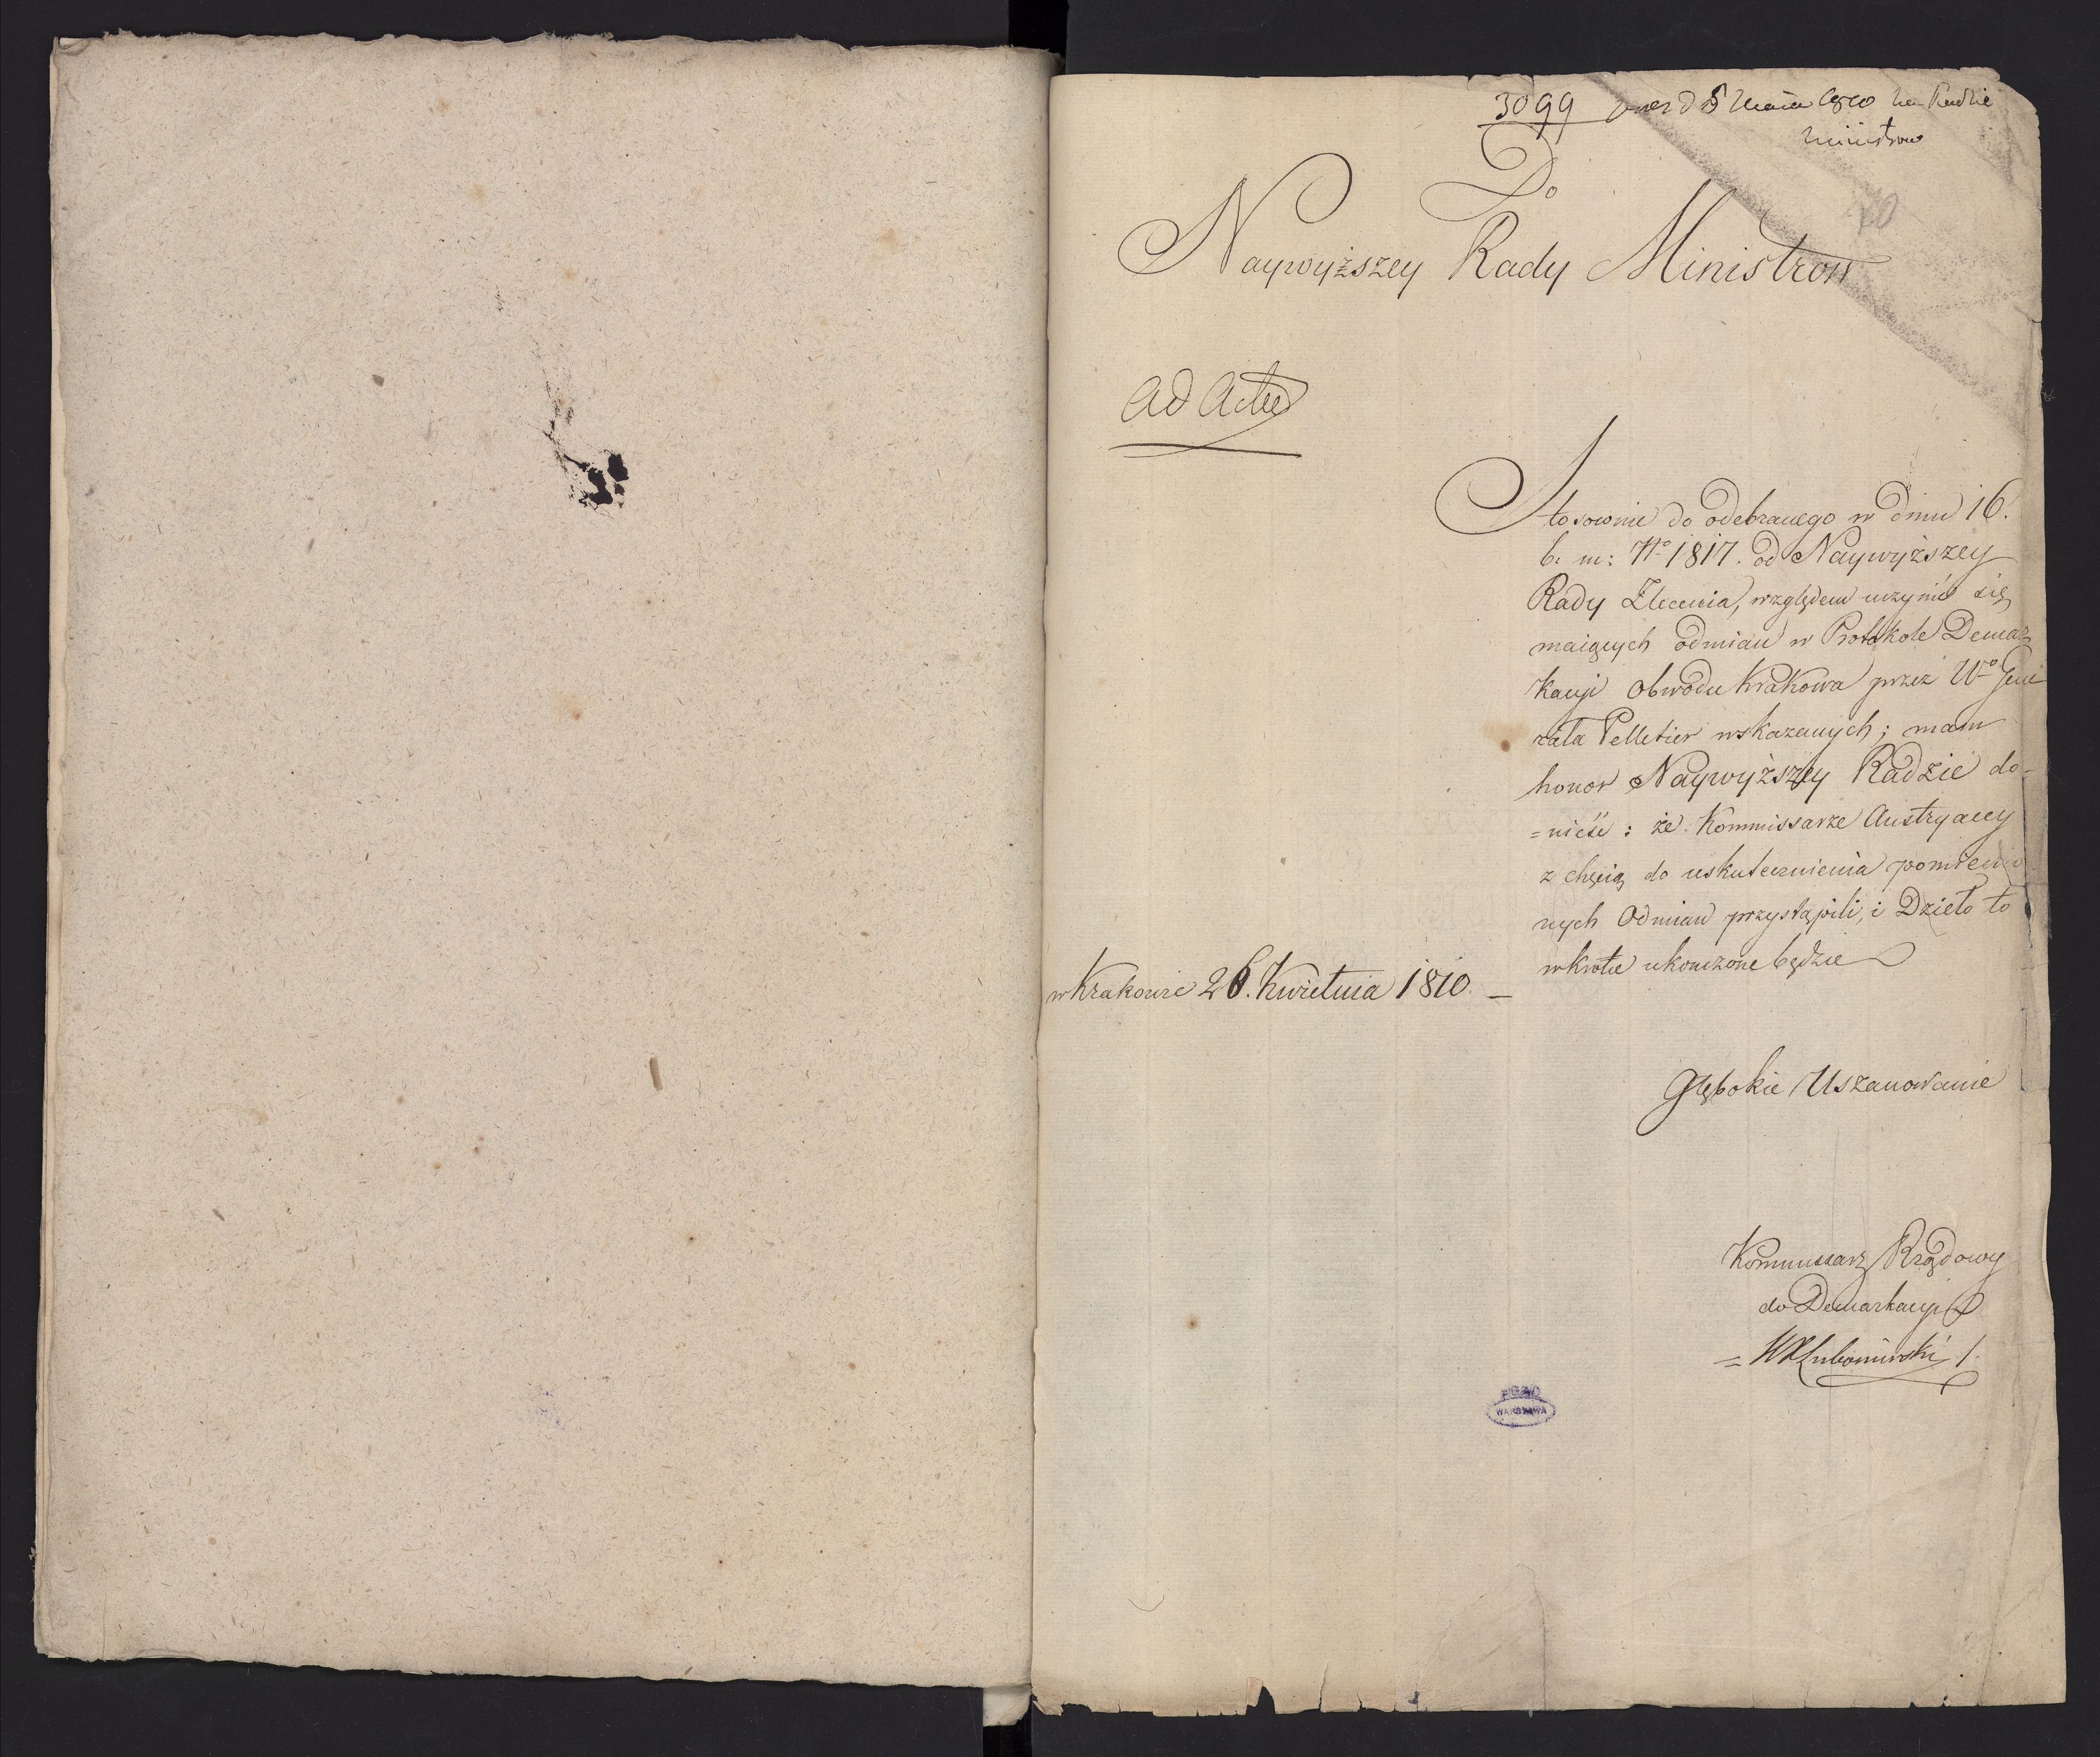 3099 d 5 Maia 1810 na Radzie
Ministrow
Do
70
Naywyższey Rady Ministrow
Ad Acta
Stosownie do odebranego w dniu 16.
b. m: No 1817. od Naywyższey
Rady Zlecenia, względem uczynić się
maiących odmian w Protokole Demar
kacyi obwodu Krakowa przez Wo Gene
rała Pelletier wskazanych; mam
honor Naywyższey Radzie do-
=nieść: że Kommissarze Austryaccy
z chęcią do uskutecznienia pomienio
nych Odmian przystąpili, i Dzieło to
wkrotce ukonczone będzie
w Krakowie 26. Kwietnia 1810. –
Głębokie Uszanowanie
Kommissarz Rządowy
do Demarkacyi
= Lubomirski /.
AGAD
WARSZAWA